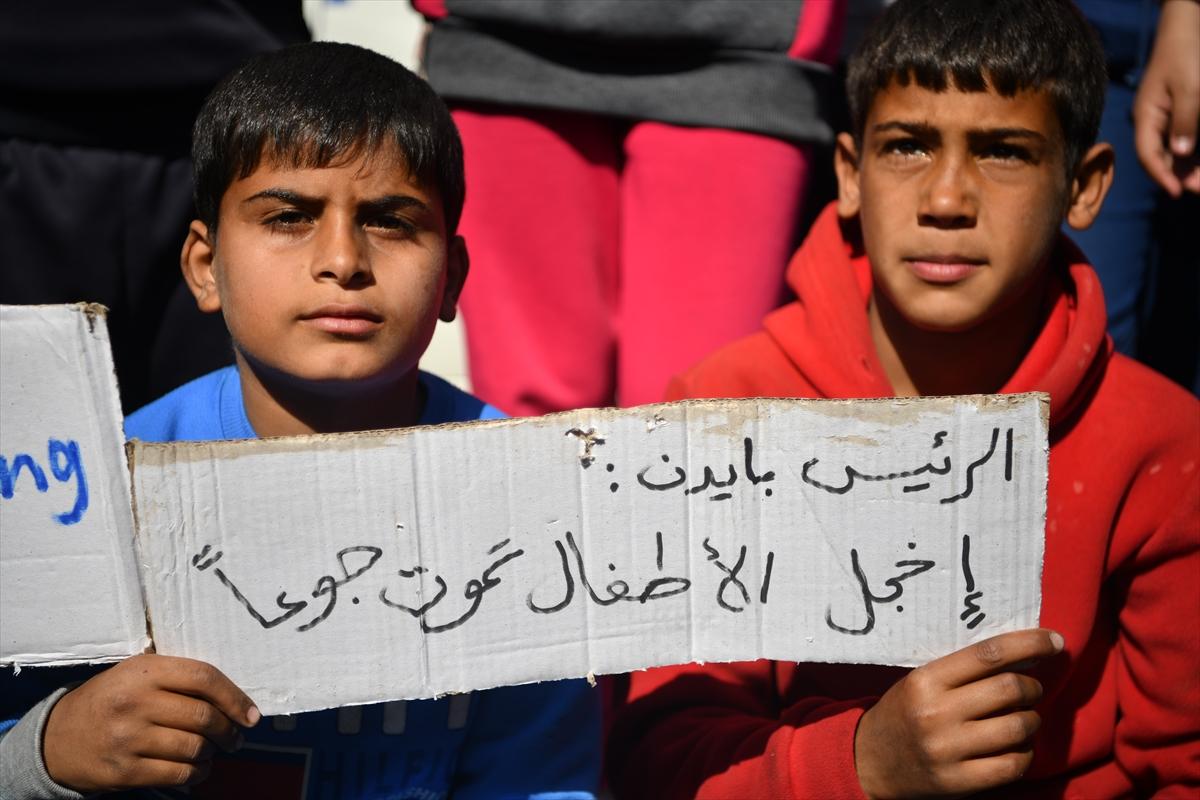 الرئيس بايدن :
إخجل الأطفال تموت جوعاً
ng
HILFI